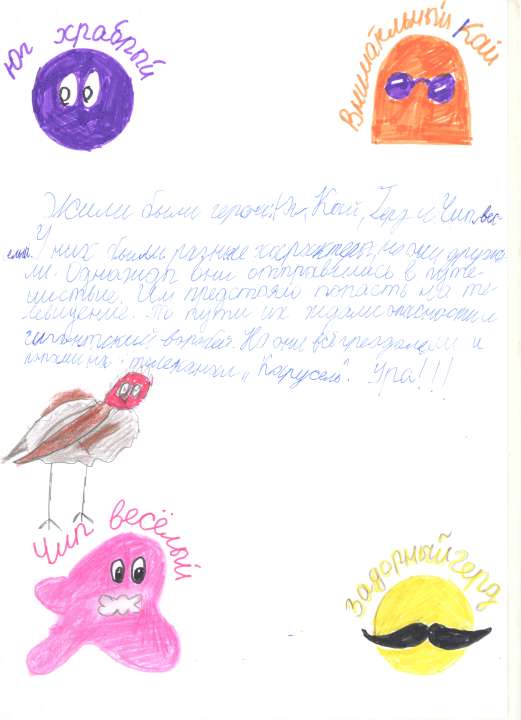 Юг храбрый
Внимательный Кай
Жили были герои: Юг, Кай, Герд и Чип вес-
елый. У них были разные характеры, но они дружи-
ли. Однажды они отправились в путе-
шествие. Им предстояло попасть на те-
левидение. По пути их ждали опасности и
гигантский воробей. Но они всё преодолели и
попали на телеканал „Карусель". Ура!!!
Чип весёлый
Задорный Герд